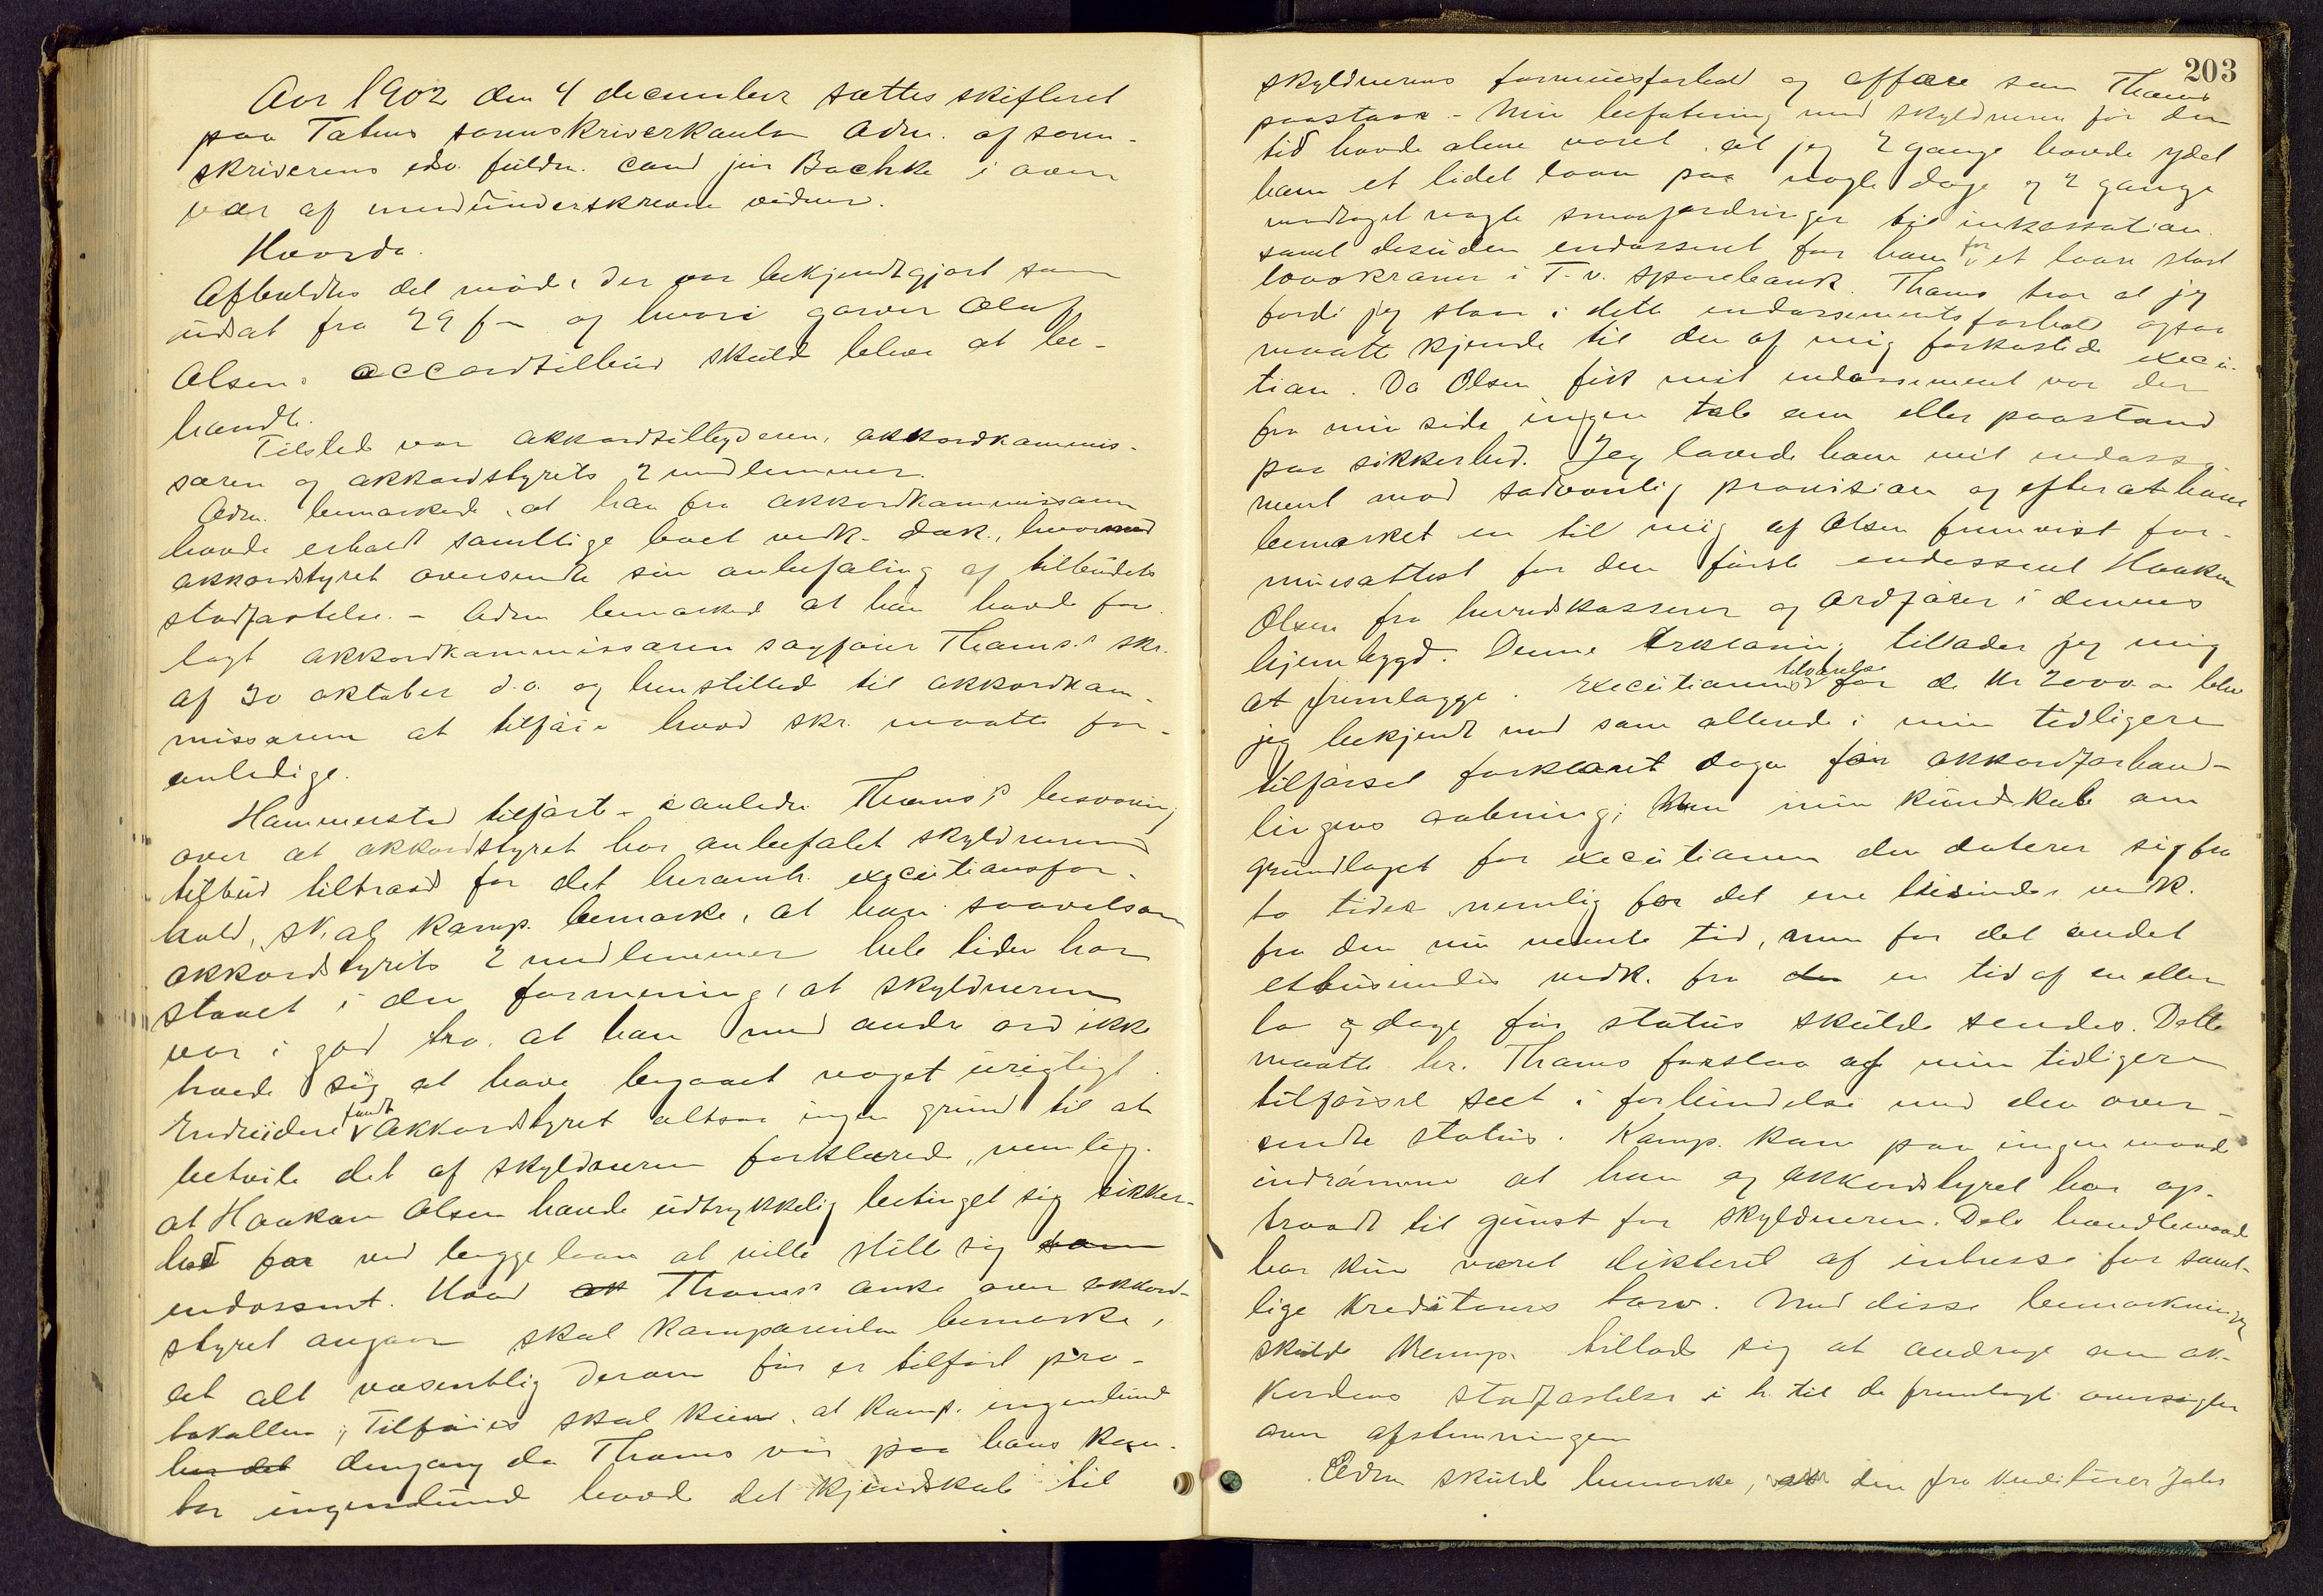 Aar 1902 den 4 december sattes skifteret
paa Totens sorenskriverkontor Adm. af soren-
skriverens edsv. fuldm. cand jur Bachke i over
vær af medunderskrevne vidner.
Hvorda.
Afholdtes det möde, der var bekjendtgjort som
udsat fra 29 f- og hvori garver Oluf
Olsens accordtilbud skulde blive at be-
handle.
Tilstede var akkordtilbyderen, akkordkommis-
særen og akkordstyrets 2 medlemmer.
Adm. bemærkede, at han fra akkordkommissæren
havde erholdt samtlige boet vedk. dok., hvormed
akkordstyret oversendte sin anbefaling af tilbudets
stadfæstelse. - Adm bemærked at han havde fore
lagt akkordkommissæren sagfører Thams's skr.
af 30 oktober d.a. og henstilled til akkordkom
missæren at tilföie hvad skr. maatte for-
anledige.
Hammerstad tilfört - i anledn Thams's besværing
over at akkordstyret har anbefalet skyldnerens
tilbud tiltraadt for det heromh. executionsfor-
hold, skal komp. bemærke, at han saavelsom
akkordstyrets 2 medlemmer hele tiden har
staaet i den formening, at skyldneren
var i god tro, at han med andre ord ikke
troede sig at have begaaet noget urigtigt.
Endvidere fandt akkordstyret altsaa ingen grund til at
betvile det af skyldneren forklarede, nemlig.
at Haakon Olsen havde udtrykkelig betinget sig sikker-
hed for ved begge laan at ville stille sig som
endossent. Hvad at Thams's anke over akkord-
styret angaar skal komparenten bemærke,
at alt væsentlig derom för er tilfört pro-
tokollen; Tilföies skal kun, at komp. ingenlunde
har det dengang da Thams var paa hans kon-
tor ingenlunde havde det kjendskab til
203
skyldnerens formuesforhold og affære som Thams
paastaar. - Min befatning med skyldneren för den
tid havde alene været, at jeg 2 gange havde ydet
ham et lidet laan paa nogle dage og 2 gange
modtaget nogle smaafordringer til inkassation
samt desuden endosseret for ham for et laan stort
1000 kroner i T. v. sparebank. Thams tror at jeg
fordi jeg staar i dette endossementsforhold ogsaa
maatte kjende til den af mig forkastede execu-
tion. Da Olsen fik mit endossement var der
fra min side ingen tale om eller paastand
paa sikkerhed. Jeg lovede ham mit endosse-
ment mod sædvanlig provision og efter at have
bemærket en til mig af Olsen fremvist for-
muesattest for den første endossent Haakon
Olsen fra herredskasserer og ordfører i dennes
hjembygd. Denne Erklæring tillader jeg mig
at fremlægge. Executionens tilværelse for de kr 2000.00 blev
jeg bekjendt med som allerede i min tidligere
tilförsel forklaret dagen för akkordforhand-
lingens aabning; Men min kundskab om
grundlaget for executionen den daterer sig fra
to tider, nemlig for det ene tusindes vedk.
fra den nu nævnte tid, men for det andet
ettusindes vedk. fra den en tid af en eller
to dage för status skulde sendes. Dette
maatte hr. Thams forstaa af min tidligere
tilförsel seet i forbindelse med den over-
sendte status. Komp. kan paa ingen maade
indrömme at han og akkordstyret har op-
traadt til gunst for skyldneren. Dets handlemaade
har kun været dikteret af intresse for samt-
lige kreditorers tarv. Med disse bemærkninger
skulde Komp. tillade sig at andrage om ak-
kordens stadfæstelse i h. til de fremlagte oversigter
over afstemningen
Adm skulde bemærke, at den fra kreditorer Johs